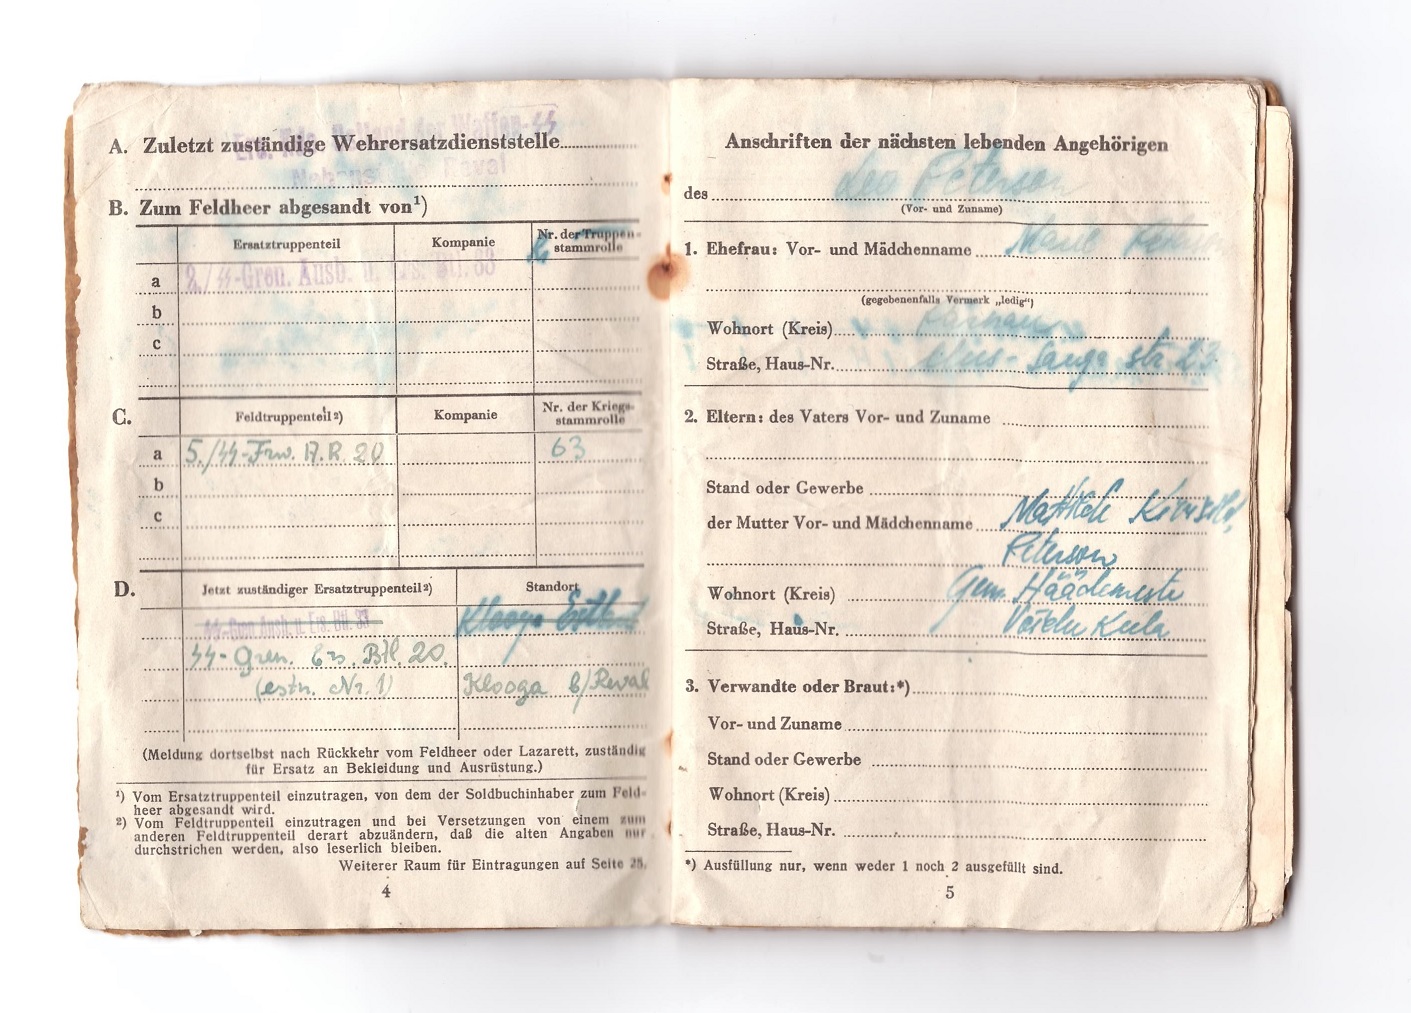 A. Zuletzt zuständige Wehrersatzdienststelle
der Waffen-SS
Reval
B. Zum Feldheer abgesandt von¹)
Ersatztruppenteil Kompanie Nr. der Truppen-
stammrolle
a 2./SS-Gren. Ausb. u. Ers. Btl. 33
b
c
C. Feldtruppenteil²) Kompanie Nr. der Kriegs-
stammrolle
a 5./SS-Frw. A.R. 20 63
b
c
D. Jetzt zuständiger Ersatztruppenteil²) Standort
SS-Gren Ausb. u Ers. Btl. 33 Klooga Estland
SS-Gren. Ers. Btl. 20.
(estn. Nr. 1) Klooga b/Reval
(Meldung dortselbst nach Rückkehr vom Feldheer oder Lazarett, zuständig
für Ersatz an Bekleidung und Ausrüstung.)
¹) Vom Ersatztruppenteil einzutragen, von dem der Soldbuchinhaber zum Feld-
heer abgesandt wird.
²) Vom Feldtruppenteil einzutragen und bei Versetzungen von einem zum
anderen Feldtruppenteil derart abzuändern, daß die alten Angaben nur
durchstrichen werden, also leserlich bleiben.
Weiterer Raum für Eintragungen auf Seite 25.
4
Anschriften der nächsten lebenden Angehörigen
des Leo Peterson
(Vor- und Zuname)
1. Ehefrau: Vor- und Mädchenname Peterson
(gegebenenfalls Vermerk „ledig“)
Wohnort (Kreis)
Straße, Haus-Nr. Sauga str. 23
2. Eltern: des Vaters Vor- und Zuname
Stand oder Gewerbe
der Mutter Vor- und Mädchenname
Peterson
Wohnort (Kreis) Gem. Häädemeeste
Straße, Haus-Nr. Küla
3. Verwandte oder Braut:*)
Vor- und Zuname
Stand oder Gewerbe
Wohnort (Kreis)
Straße, Haus-Nr.
*) Ausfüllung nur, wenn weder 1 noch 2 ausgefüllt sind.
5